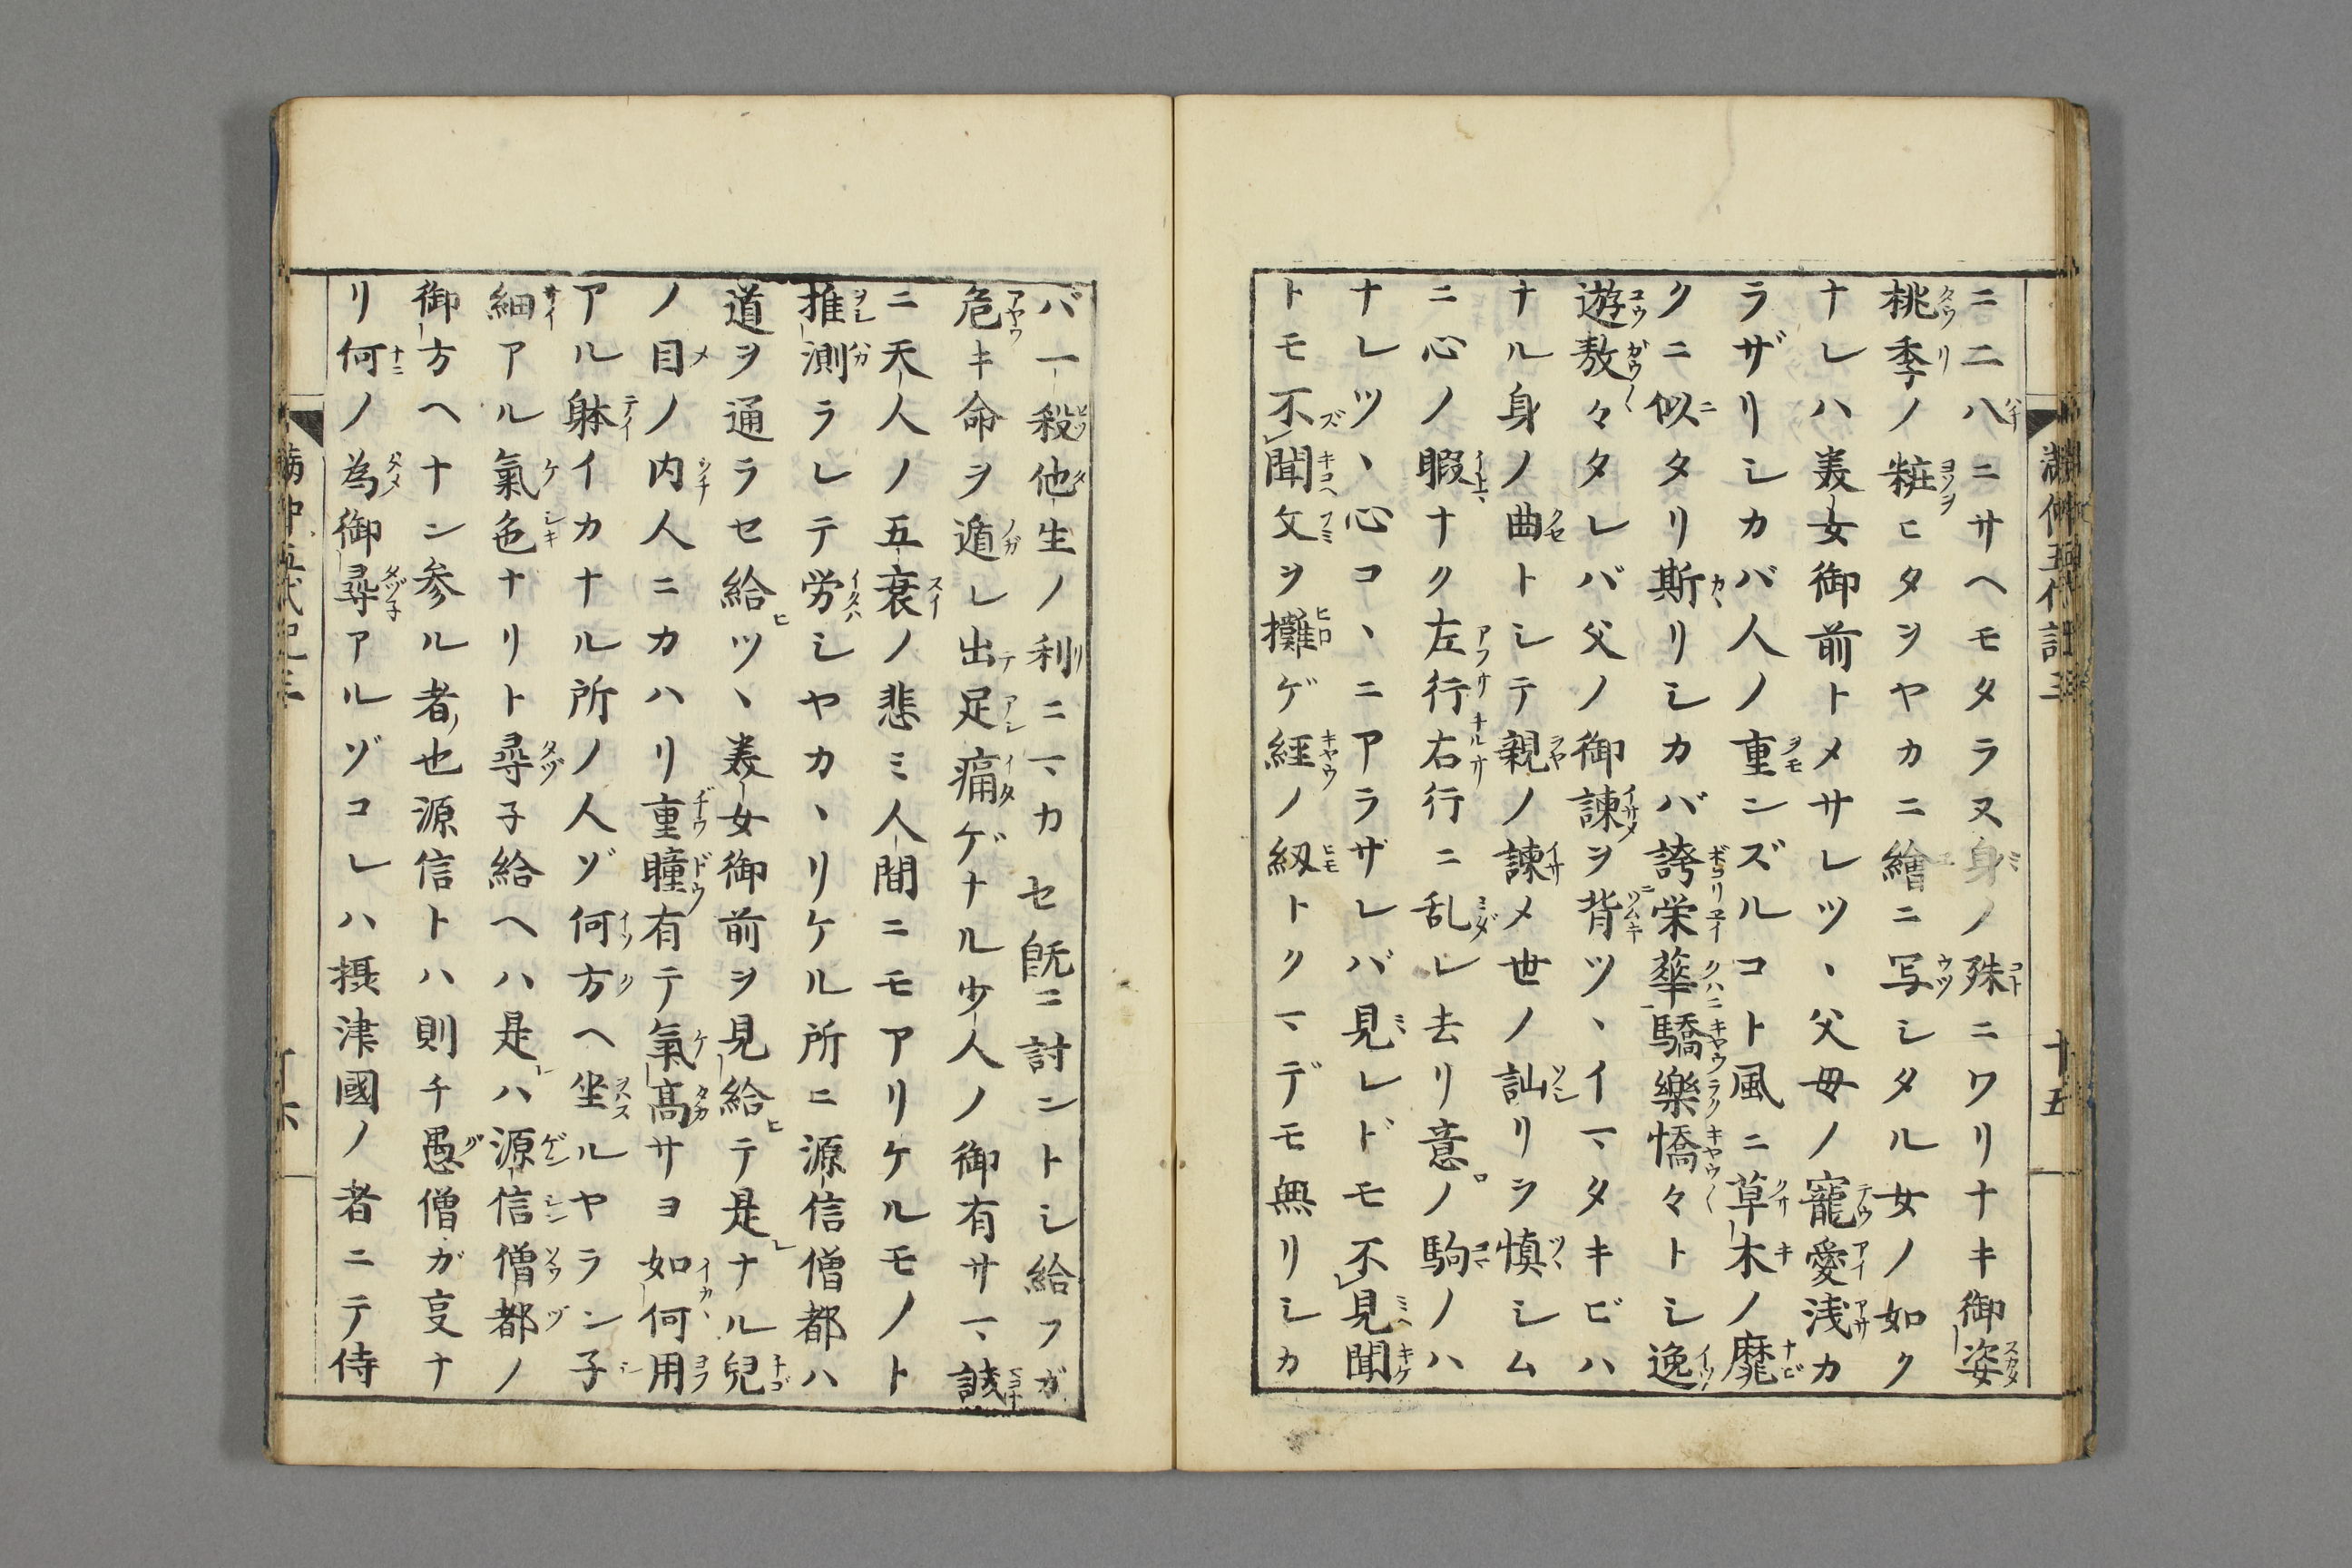 ニ二八ニサヘモタラヌ身ノ殊ニワリナキ御姿
桃季ノ粧ヒタヲヤカニ繪ニ写シタル女ノ如ク
ナレハ美女御前トメサレツヽ父母ノ寵愛浅カ
ラザリシカバ人ノ重ンズルコト風ニ草木ノ靡
クニ似タリ斯リシカバ誇栄華驕樂憍々トシ逸
遊敖々タレバ父ノ御諫ヲ背ツヽイマタキビハ
ナル身ノ曲トシテ親ノ諫メ世ノ訕リヲ慎シム
ニ心ノ暇ナク左行右行ニ乱レ去リ意ノ駒ノハ
ナレツヽ心コヽニアラザレバ見レドモ不見聞
トモ不聞文ヲ攤ゲ経ノ紐トクマデモ無リシカ
滿仲五代記三
十五
バ一殺他生ノ利ニマカセ既ニ討ントシ給フガ
危キ命ヲ遁レ出足痛ゲナル少人ノ御有サマ誠
ニ天人ノ五衰ノ悲ミ人間ニモアリケルモノト
推測ラレテ労シヤカヽリケル所ニ源信僧都ハ
道ヲ通ラセ給ヒツヽ美女御前ヲ見給ヒテ是レナル兒
ノ目ノ内人ニカハリ重瞳有テ氣高サヨ如何用
アル躰イカナル所ノ人ゾ何方ヘ坐ルヤラン子
細アル氣色ナリト尋子給ヘハ是レハ源信僧都ノ
御方ヘナン参ル者ノ也源信トハ則チ愚僧ガ㕝ナ
リ何ノ為御尋アルゾコレハ摂津國ノ者ニテ侍